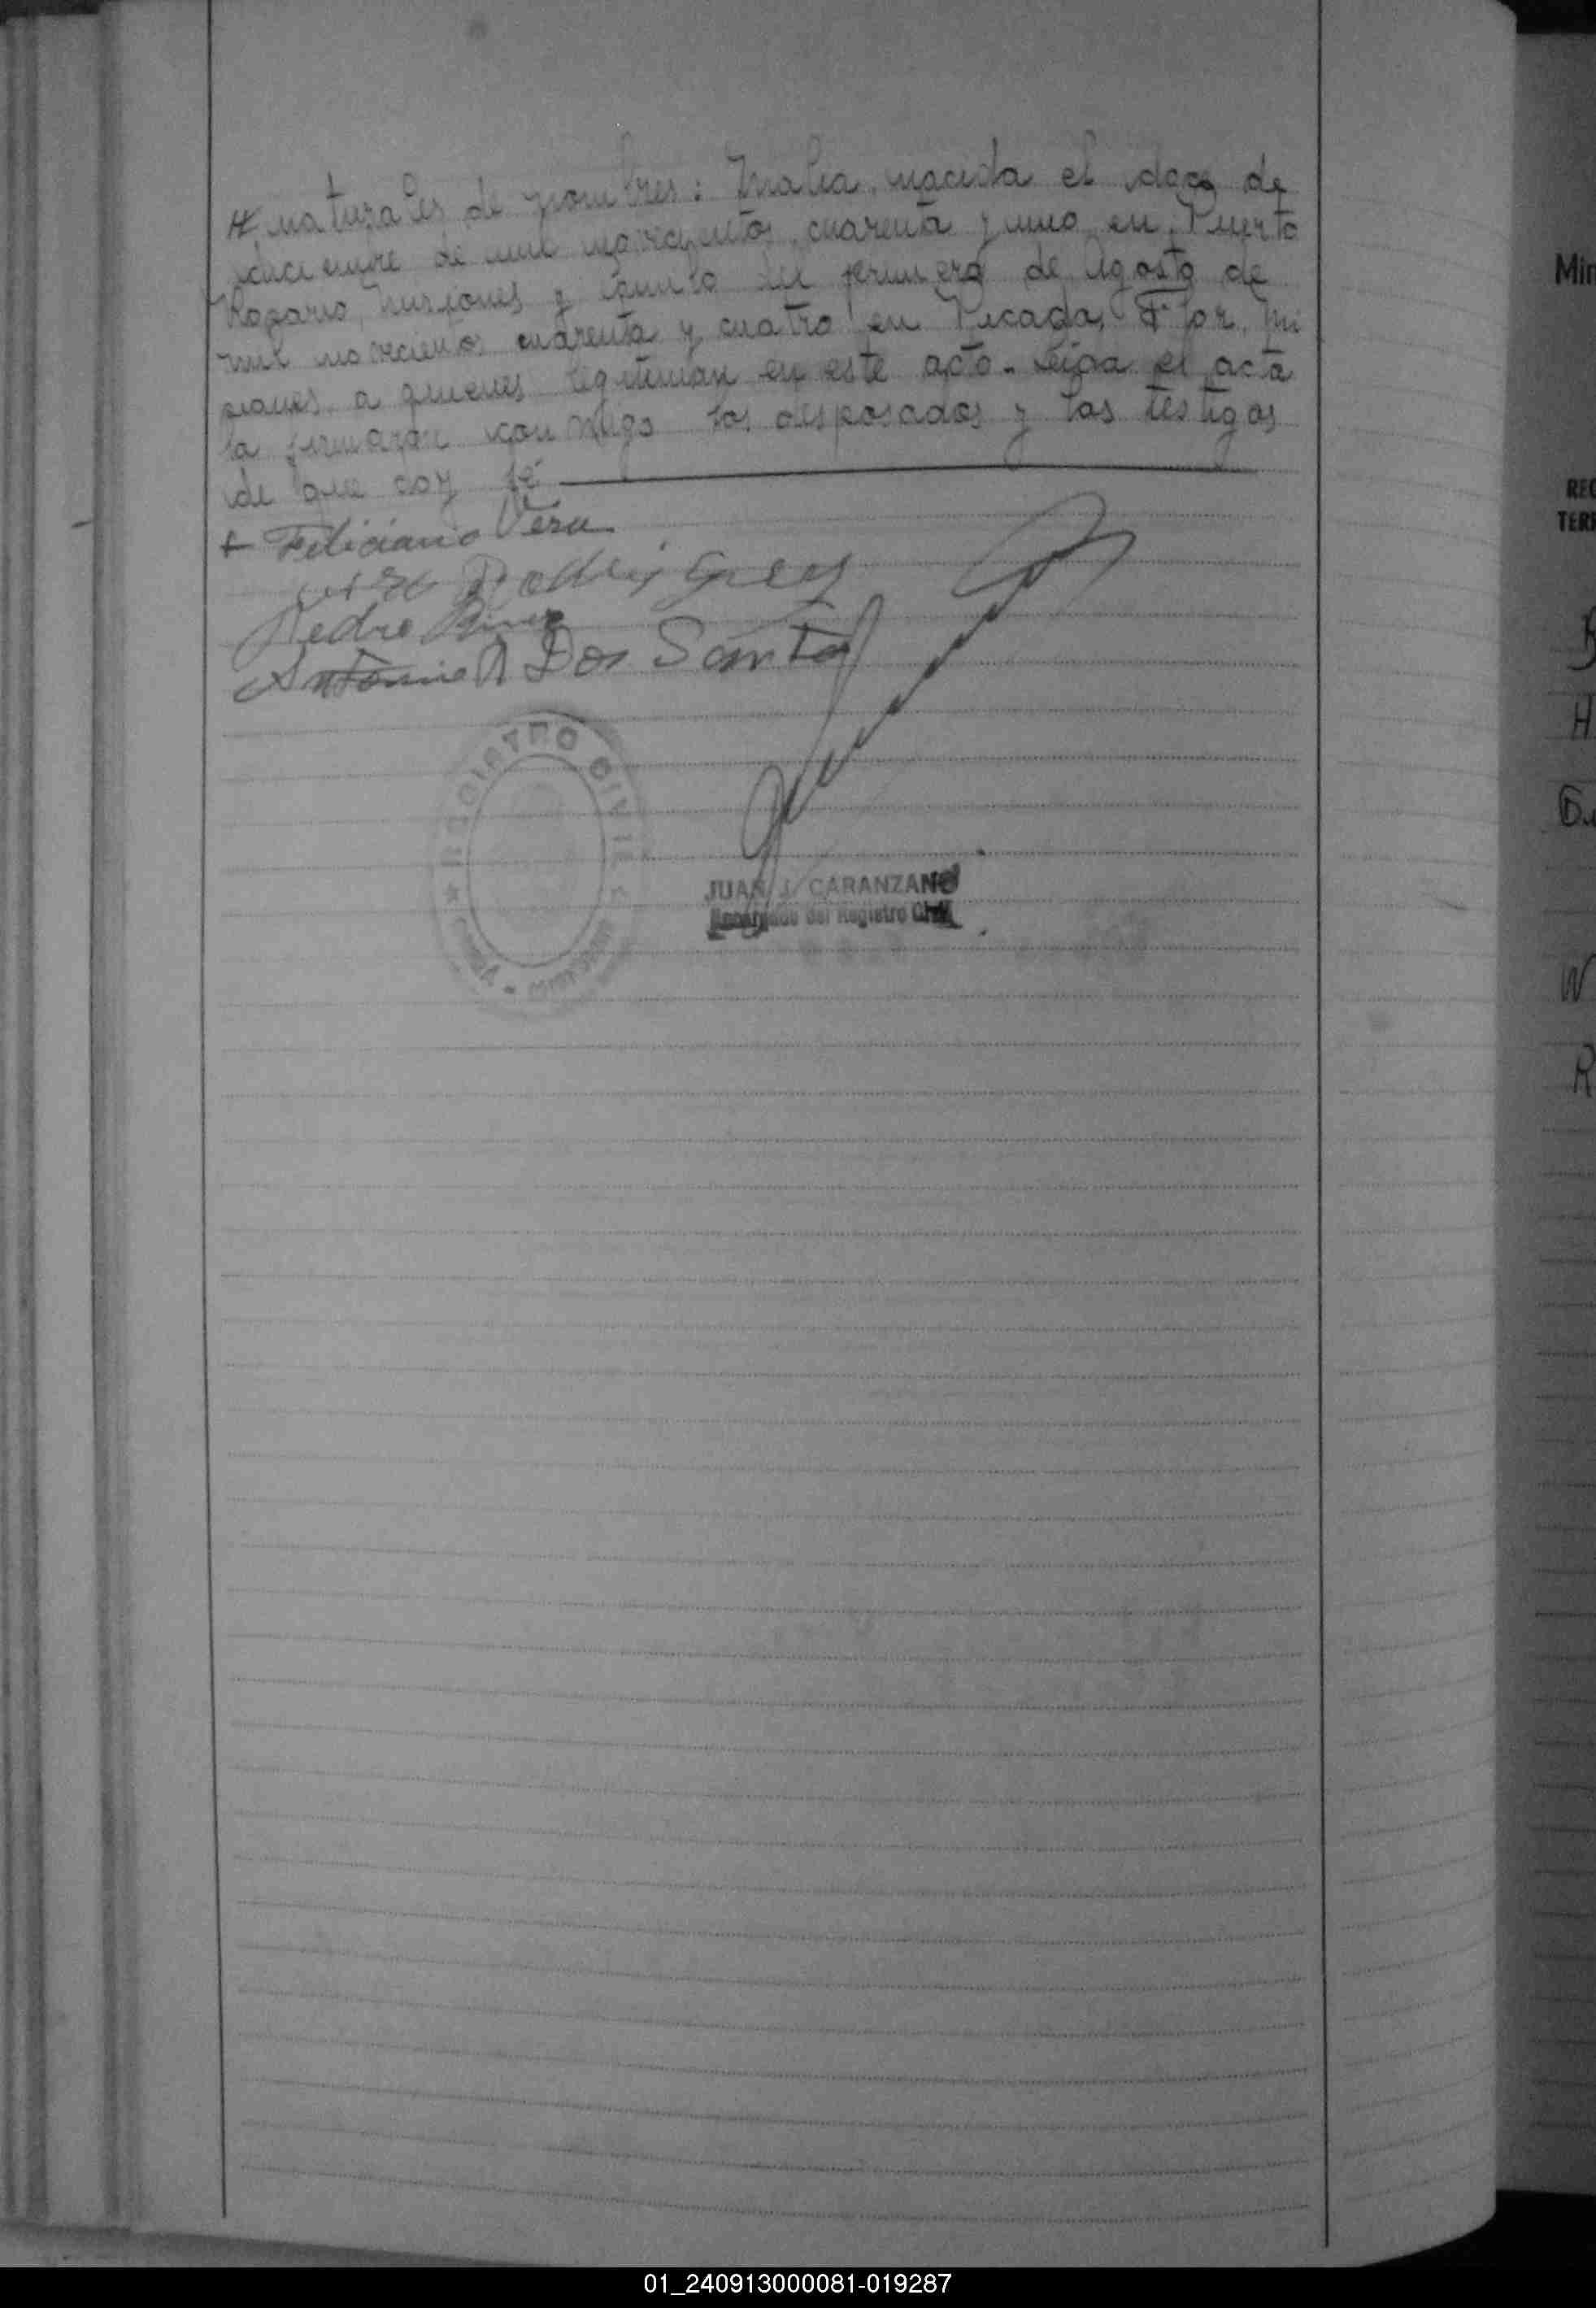 naturales de nombres: Amalia, nacida el doce de
diciembre de mil novecientos cuarenta y uno en Puerto
Rosario, Misiones y del primero de Agosto de
mil novecientos cuarenta y cuatro en Picada Flor, Mi
siones, a quienes legitiman en este acto. Leída el acta
la firmaron conmigo los desposados y los testigos
de que doy fé
+ Feliciano Vera
Rodriguez
Pedro
Antonio Dos Santos
REGISTRO CIVIL
JUAN J. CARANZANO
Encargado del Registro Civil
Min
REG
TERR
H
W
R
01_240913000081-019287